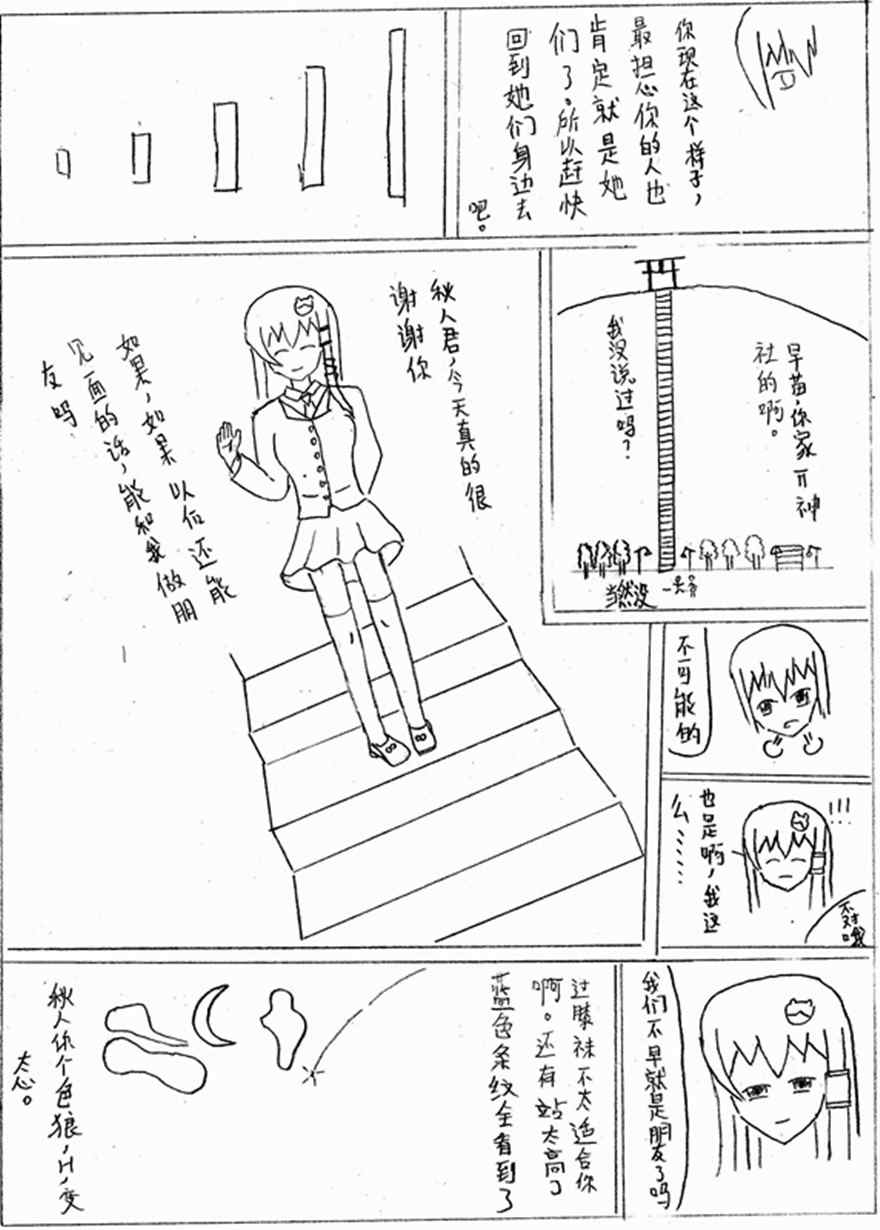 你现在这个样子，
最担心你的人也
肯定就是她
们了。所以赶快
回到她们身边去
吧。
早苗，你家是神
社的啊。
我没说过吗？
当然没
秋人君，今天真的很
谢谢你
如果，如果以后还能
见面的话，能和我做朋
友吗
不可能的
也是啊，我这
么……
不对哦
我们不早就是朋友了吗
过膝袜不太适合你
啊。还有站太高了
蓝色条纹全看到了
秋人你个色狼，H，变
太心。